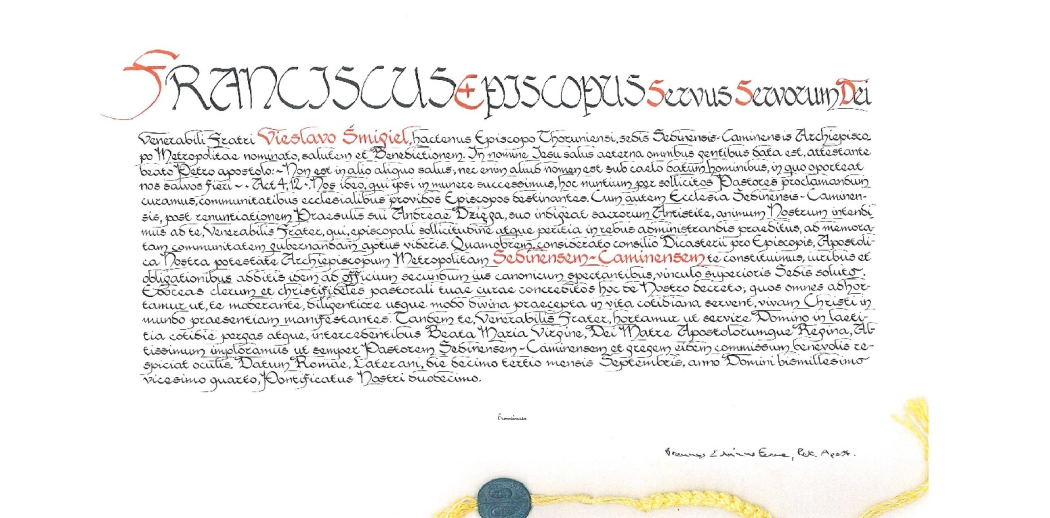 FRANCISCUS EPISCOPUS Servus Servorum Dei
Venerabili Fratri Vieslavo Śmigiel, hactenus Episcopo Thoruniensi, sedis Sedinensis-Caminensis Archiepisco
po Metropolitae nominato, salutem et Benedictionem. In nomine Iesu salus aeterna omnibus gentibus data est, attestante
beato Petro apostolo: ~ Non est in alio aliquo salus, nec enim aliud nomen est sub caelo datum hominibus, in quo oporteat
nos salvos fieri ~ - Act 4, 12 -. Nos ideo, qui ipsi in munere successimus, hoc nuntium per sollicitos Pastores proclamandum
curamus, communitatibus ecclesialibus providos Episcopos destinantes. Cum autem Ecclesia Sedinensis-Caminen-
sis, post renuntiationem Praesulis sui Andreae Dzięga, suo indigeat sacrorum Antistite, animum Nostrum intendi
mus ad te, Venerabilis Frater, qui, episcopali sollicitudine atque peritia in rebus administrandis praeditus, ad memora-
tam communitatem gubernandam aptus videris. Quamobrem, considerato consilio Dicasterii pro Episcopis, Apostoli-
ca Nostra potestate Archiepiscopum Metropolitam Sedinensem-Caminensem te constituimus, iuribus et
obligationibus additis idem ad officium secundum ius canonicum spectantibus, vinculo superioris Sedis soluto.
Edoceas clerum et christifideles pastorali tuae curae concreditos hoc de Nostro decreto; quos omnes adhor-
tamur ut, te moderante, diligentiore usque modo divina praecepta in vita cotidiana servent, vivam Christi in
mundo praesentiam manifestantes. Tandem te, Venerabilis Frater, hortamur ut servire Domino in laeti-
tia cotidie pergas atque, intercedentibus Beata Maria Virgine, Dei Matre Apostolorumque Regina, Al-
tissimum imploramus ut semper Pastorem Sedinensem-Caminensem et gregem eidem commissum benevolis re-
spiciat oculis. Datum Romae, Laterani, die decimo tertio mensis Septembris, anno Domini bismillesimo
vicesimo quarto, Pontificatus Nostri duodecimo.
Franciscus